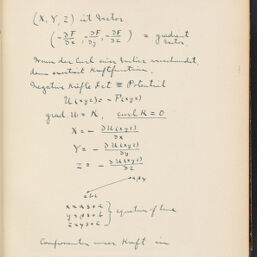 (X, Y, Z) ist Vector
(-∂F/∂x, -∂F/∂y, -∂F/∂z) = gradient Vector.
Wenn der Curl eines Vectors verschwindet,
dann existiert Kräftefunction.
Negative Kräfte Fct ≡ Potential
U(xyz) = -F(xyz)
grad. U = K, curl K = 0
X = - ∂U(xyz)/∂x
Y = - ∂U(xyz)/∂y
Z = - ∂U(xyz)/∂z
equations of line
Componenten einer Kraft in